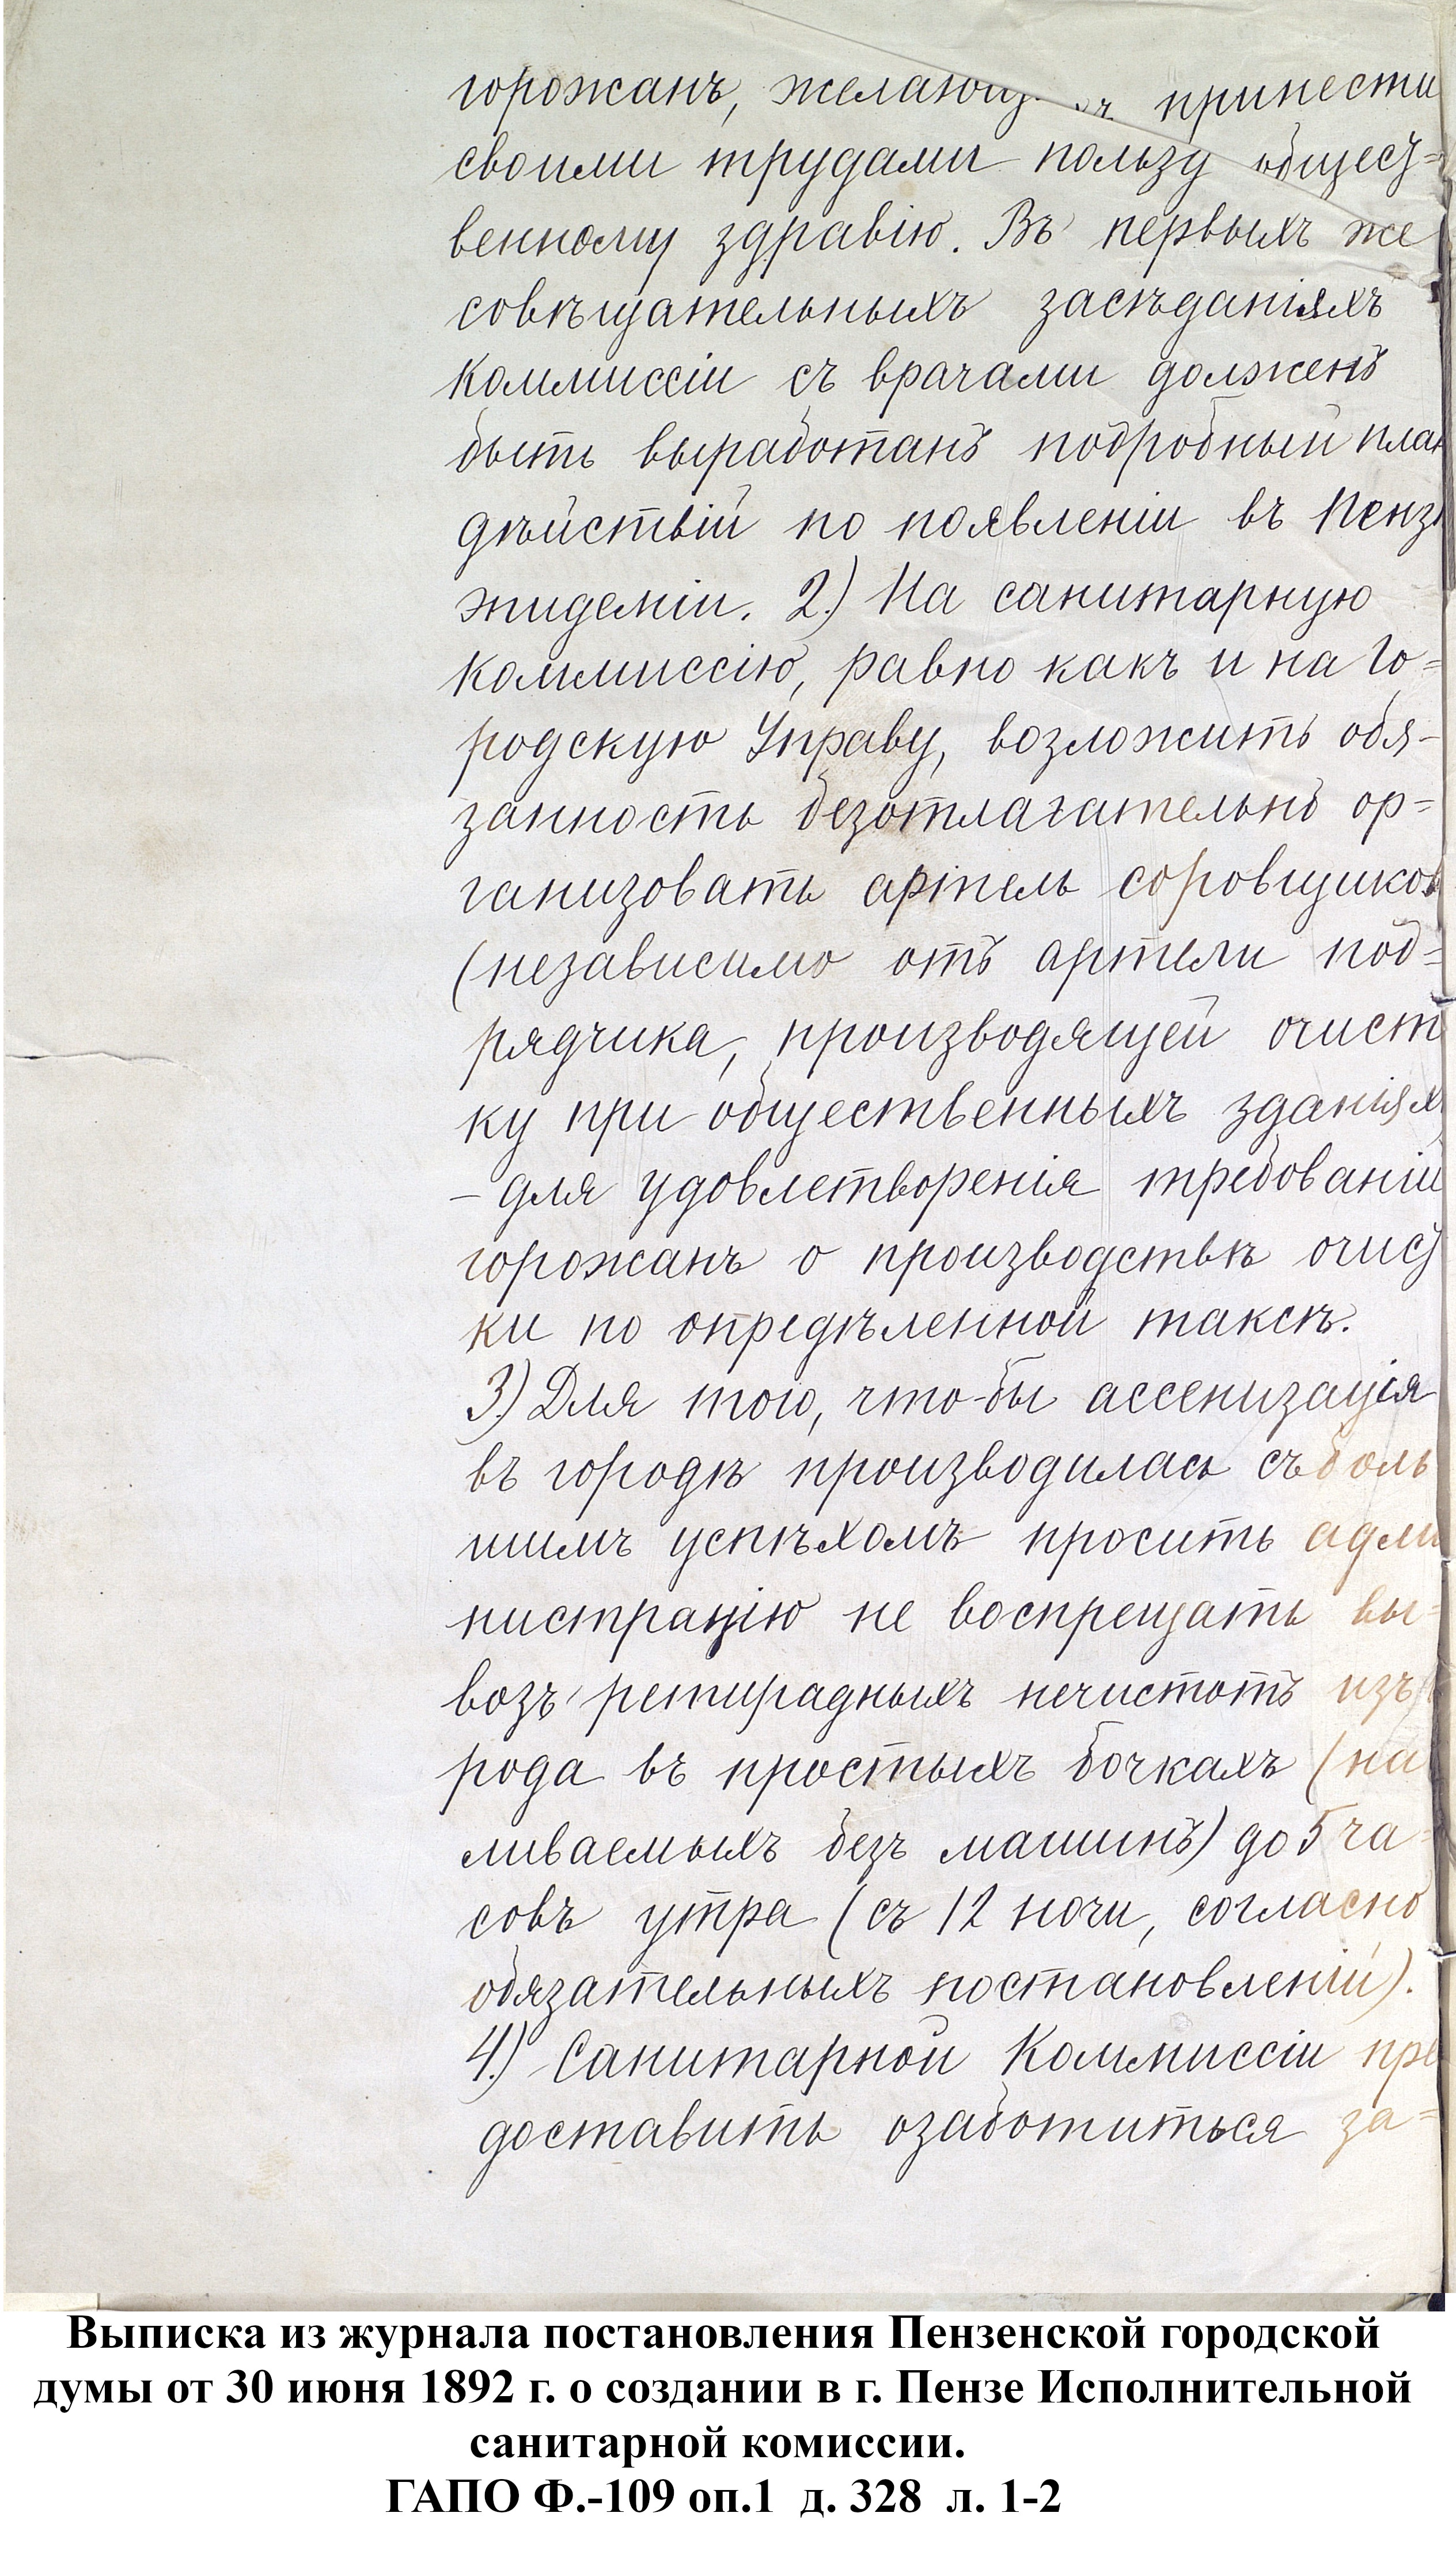 горожанъ, желающ хъ принести
своими трудами пользу общест=
венному здравію. Въ первыхъ же
совѣщательныхъ засѣданіяхъ
коммиссіи съ врачами долженъ
быть выработанъ подробный план
дѣйствій по появленіи въ Пенз
эпидеміи. 2.) На санитарную
коммиссію, равно какъ и на Го=
родскую Управу, возложить обя-
занность безотлагательно ор=
ганизовать артель соровщиков
(независимо отъ артели под=
рядчика, производящей очист
ку при общественныхъ зданіях
– для удовлетворенія требованій
горожанъ о производствѣ очист
ки по опредѣленной таксѣ.
3.) Для того, что-бы ассенизація
въ городѣ производилась съ боль
шимъ успѣхомъ просить адми
нистрацію не воспрещать вы=
возъ ретирадныхъ нечистотъ изъ
рода въ простыхъ бочкахъ (на
ливаемыхъ безъ машинъ) до 5 ча=
совъ утра (съ 12 ночи, согласно
обязательныхъ постановленій).
4.) Санитарной Коммиссіи пре
доставить озаботиться за=
Выписка из журнала постановления Пензенской городской
думы от 30 июня 1892 г. о создании в г. Пензе Исполнительной
санитарной комиссии.
ГАПО Ф.-109 оп.1 д. 328 л. 1-2